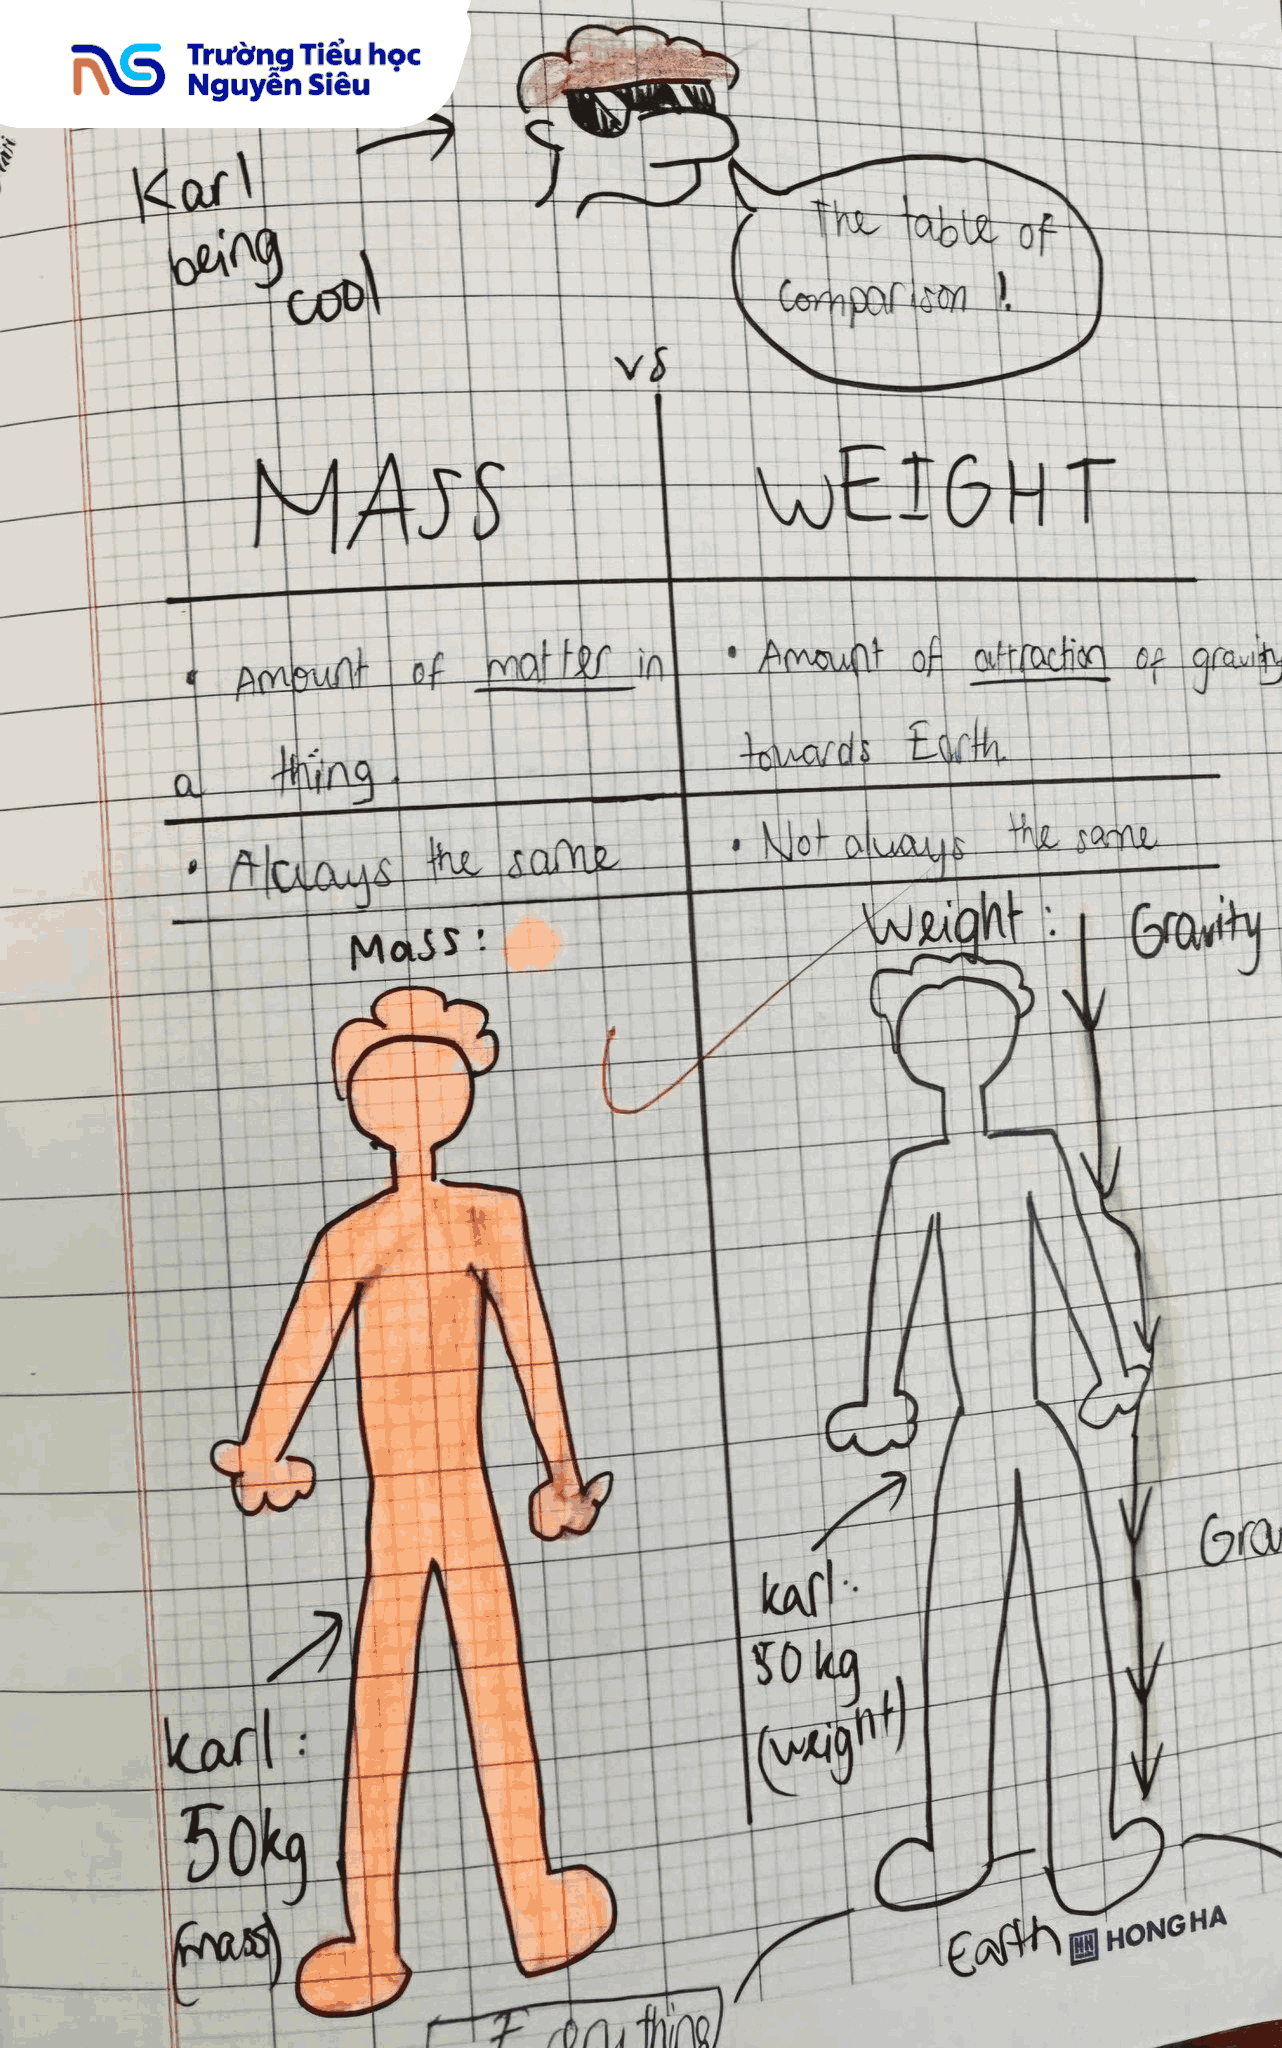 Trường Tiểu học
Nguyễn Siêu
Karl
being
cool
The table of
comparison !
vs
MASS
WEIGHT
• Amount of matter in
a thing.
• Amount of attraction of gravity
towards Earth.
• Always the same
• Not always the same
Mass:
Weight:
Gravity
Karl:
50kg
(mass)
Karl:
50kg
(weight)
Earth
HONG HA